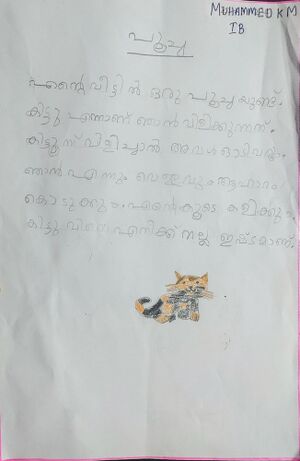 MUHAMMED K M
IB
പൂച്ച
എന്റെ വീട്ടിൽ ഒരു പൂച്ചയുണ്ട്.
കിട്ടു എന്നാണ് ഞാൻ വിളിക്കുന്നത്.
കിട്ടൂന്ന് വിളിച്ചാൽ അവൾ ഓടിവരും.
ഞാൻ എന്നും വെള്ളവും ആഹാരം
കൊടുക്കും. എന്റെകൂടെ കളിക്കും.
കിട്ടുവിനെ എനിക്ക് നല്ല ഇഷ്ടമാണ്.